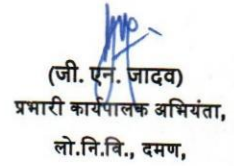 (जी. एन. जादव)
प्रभारी कार्यपालक अभियंता,
लो.नि.वि., दमण,